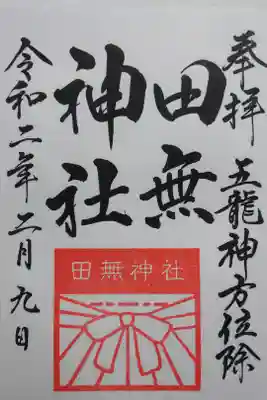 奉拝 五龍神方位除
田無
神社
田無神社
令和二年二月九日